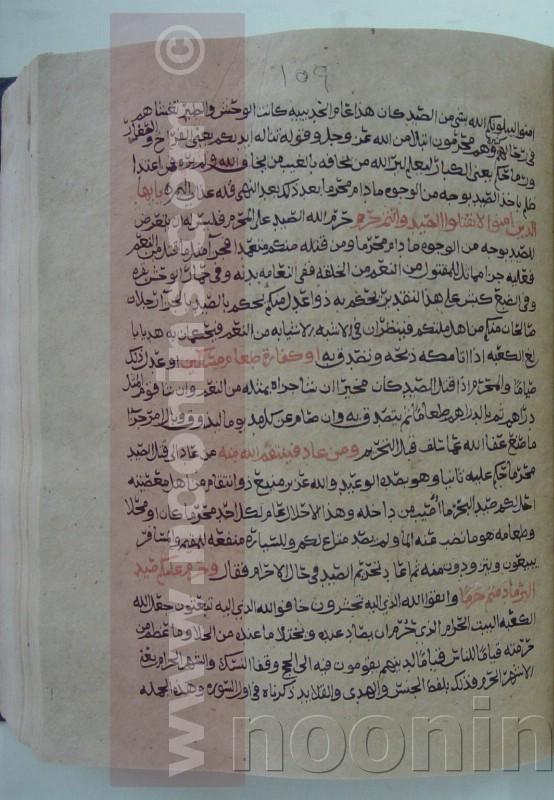 ١٥٩
امنوا ليبلونكم الله بشي من الصيد كان هذا عام الحديبيه كانت الوحش والطير تغشاهم
في رحالهم وهم محرمون ابتلا من الله عز وجل وقوله تناله ايديكم يعني الفراخ والصغار
ورماحكم يعني الكبار ليعلم الله من يخافه بالغيب من يخاف الله ولم يره فمن اعتدا
ظلم باخذ الصيد بوجه من الوجوه ما دام محرما بعد ذلك بعد النهي فله عذاب اليم يا ايها
الذين امنوا لا تقتلوا الصيد وانتم حرم حرم الله الصيد على المحرم فليس له ان يتعرض
للصيد بوجه من الوجوه ما دام محرما ومن قتله منكم متعمدا فجزا مثل ما قتل من النعم
فعليه جزا مماثل للمقتول من النعم من الخلقه ففي النعامه بدنه وفي حمار الوحش بقره
وفي الضبع كبش على هذا التقدير يحكم به ذوا عدل منكم يحكم في الصيد بالجزا رجلان
صالحان منكم من اهل ملتكم فينظران في الاشبه الاشيا به من النعم فيحكمان به هديا با
لغ الكعبه اذا اتا مكه ذبحه وتصدق به او كفارة طعام مساكين او عدل ذلك
صياما والمحرم اذا قتل الصيد كان مخيرا ان شا جزاه بمثله من النعم وان شا قوم المثل
دراهم ثم بالدراهم طعاما ثم يتصدق به وان صام عن كل مد يوما ليذوق وبال امره جزا
ما صنع عفا الله عما سلف قبل التحريم ومن عاد فينتقم الله منه من عاد الى قتل الصيد
محرما حكم عليه ثانيا وهو بصدد الوعيد والله عزيز منيع ذو انتقام من اهل معصيته
احل لكم صيد البحر ما اصيب من داخله وهذا الاحلال عام لكل احد محرما كان او محلا
وطعامه هو ما نضب عنه الما ولم يصد متاعا لكم وللسيارة منفعه للمقيم والمسافر
يبيعون ويتزودون منه ثم اعاد تحريم الصيد في حال الاحرام فقال وحرم عليكم صيد
البر ما دمتم حرما واتقوا الله الذي اليه تحشرون خافوا الله الذي اليه تبعثون جعل الله
الكعبه البيت الحرام الذي حرم ان يصاد عنده و يختلا ما عنده من الخلا وما عظم من
حرمته قياما للناس قياما لدينهم يقومون فيه الى الحج وقضا النسك والشهر الحرام يعني
الاشهر الحرم فذكر بلفظ الجنس والهدى والقلايد ذكرناه في اول السوره وهذه الجمله
www.noonins.com ©
noonin